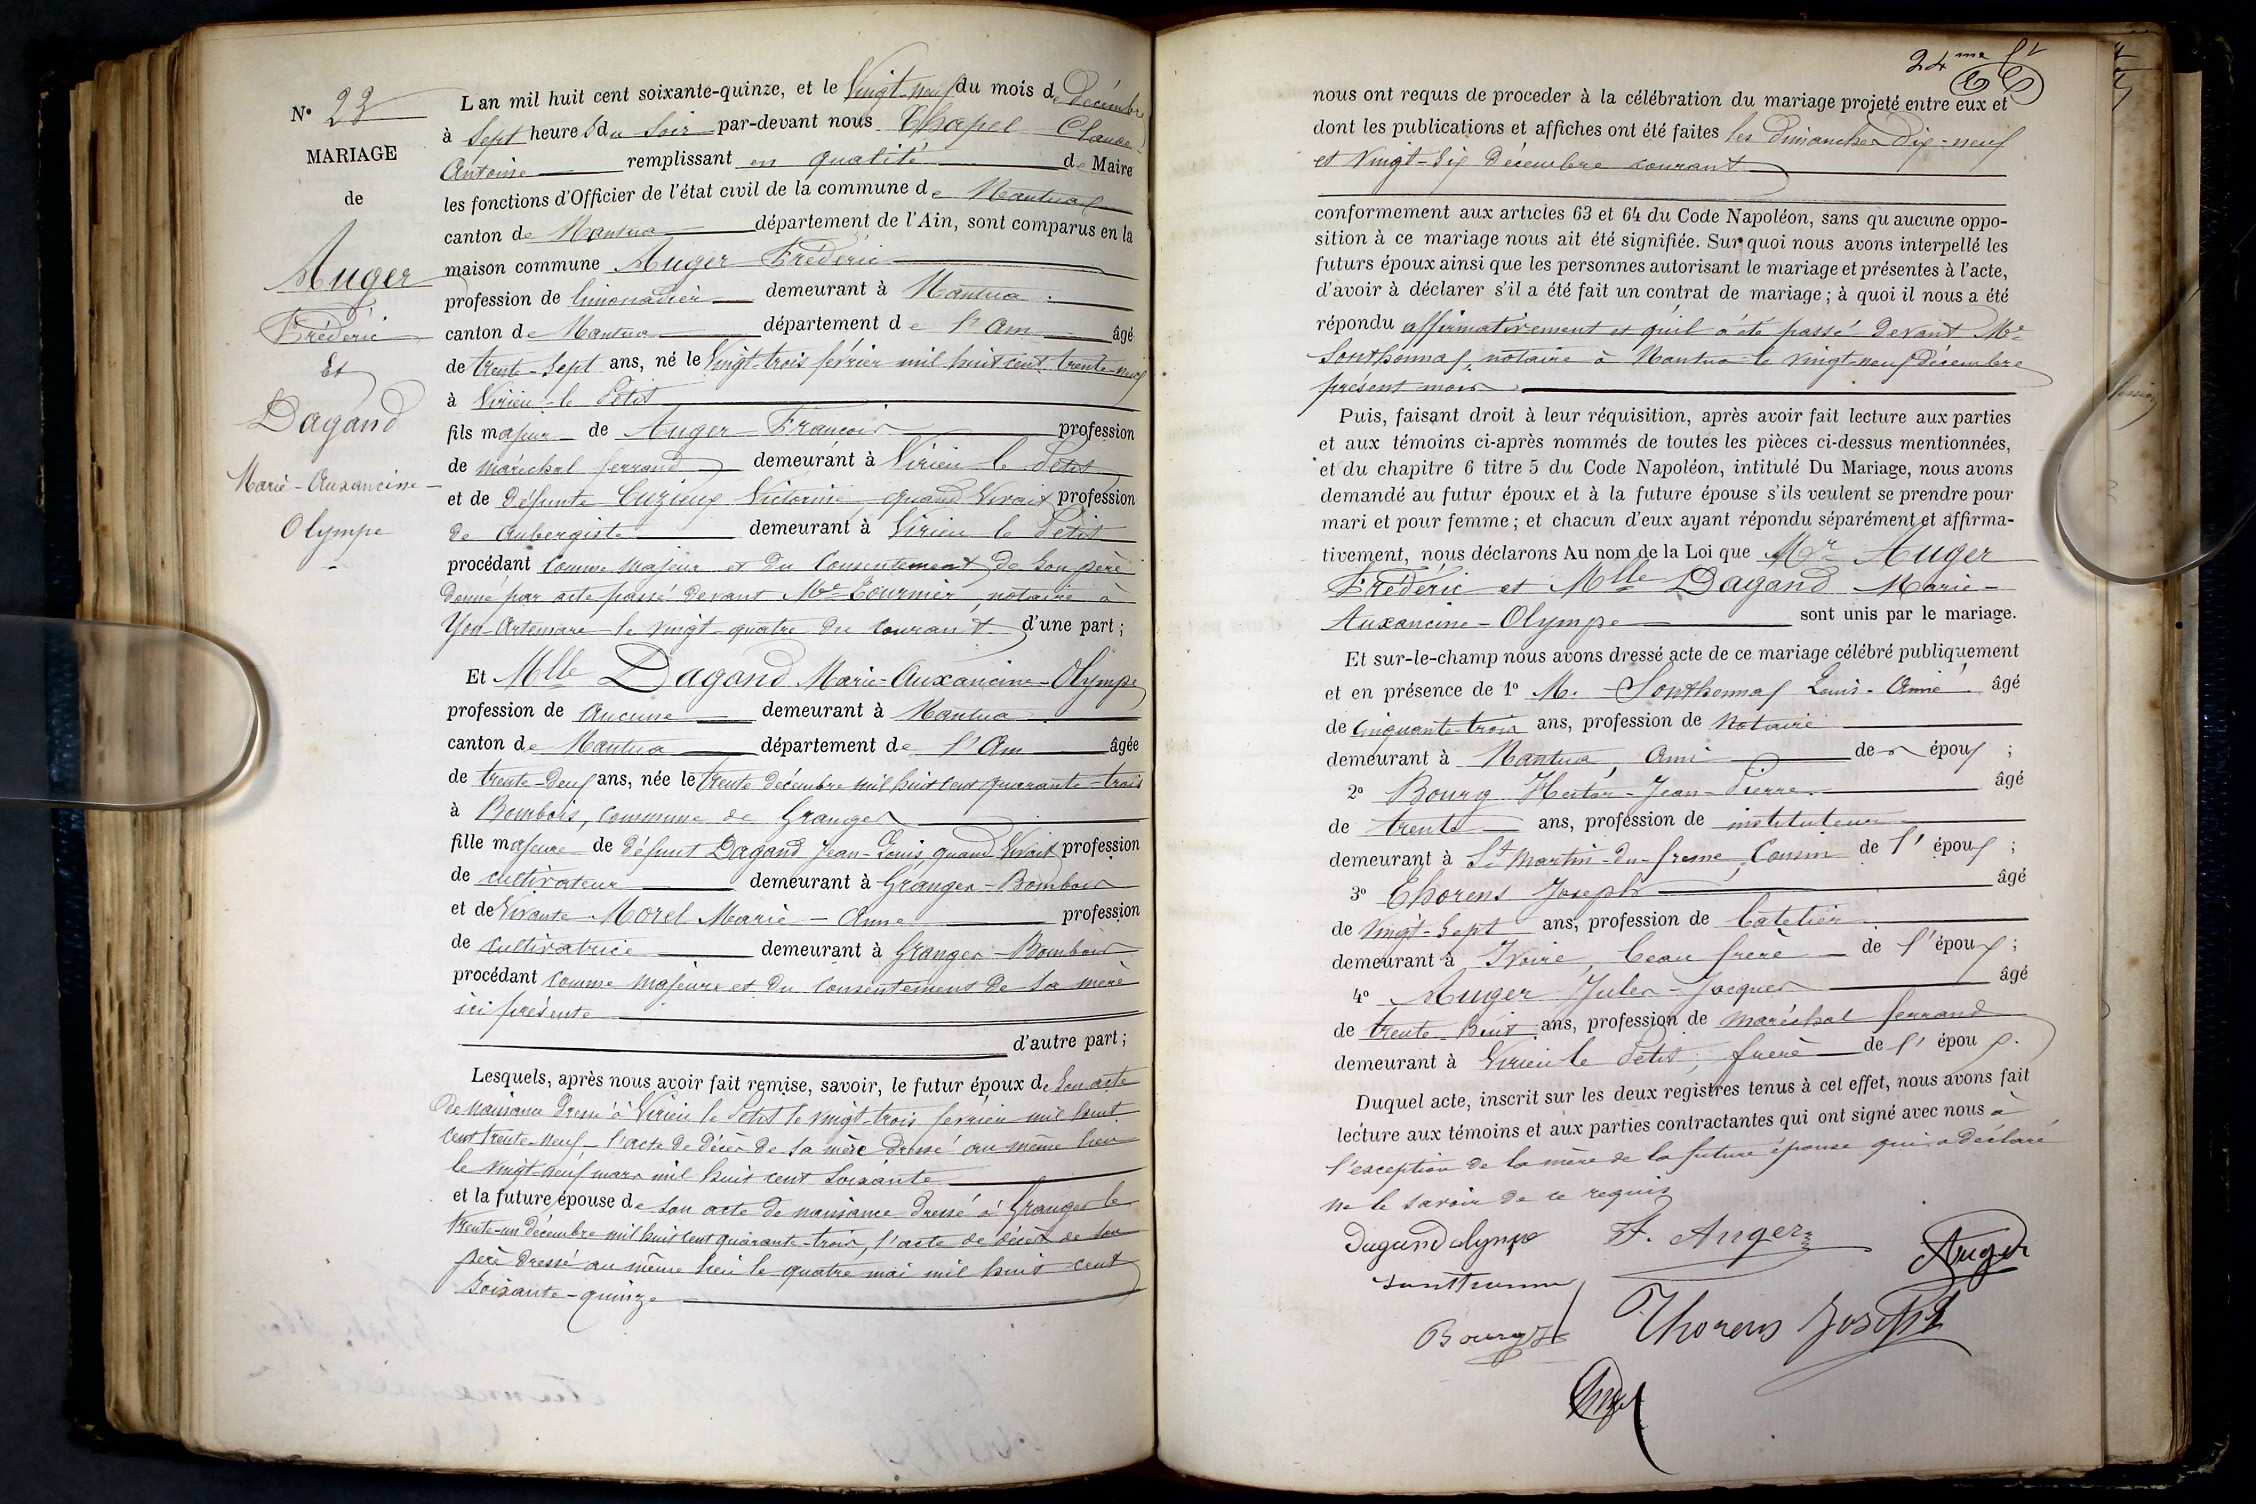 N° 22
MARIAGE
de
Auger
Frédéric
Et
Dagand
Marie-Auxancine-
Olympe
L'an mil huit cent soixante-quinze, et le Vingt-neuf du mois de Décembre
à Sept heures du Soir par-devant nous Chapel Claude-
Antoine remplissant en qualité de Maire
les fonctions d'Officier de l'état civil de la commune de Nantua
canton de Nantua département de l'Ain, sont comparus en la
maison commune Auger Frédéric
profession de limonadier demeurant à Nantua
canton de Nantua département de l'Ain âgé
de trente-sept ans, né le Vingt-trois février mil huit cent trente-neuf
à Virieu-le Petit
fils majeur de Auger François profession
de maréchal ferrand demeurant à Virieu le Petit
et de défunte Cuzieux Victorine, quand Vivait profession
de aubergiste demeurant à Virieu le Petit
procédant comme majeur et du Consentement de son père
donné par acte passé devant Me Tournier, notaire à
Yon-Artemare le vingt-quatre du courant d'une part ;
Et Mlle Dagand Marie-Auxancine-Olympe
profession de aucune demeurant à Nantua
canton de Nantua département de l'Ain âgée
de trente-deux ans, née le trente décembre mil huit cent quarante-trois
à Bombois, commune de Granges
fille majeure de défunt Dagand Jean-Louis, quand Vivait profession
de cultivateur demeurant à Granges-Bombois
et de Vivante Morel Marie-Anne profession
de cultivatrice demeurant à Granges-Bombois
procédant comme majeure et du Consentement de sa mère
ici présente
d'autre part ;
Lesquels, après nous avoir fait remise, savoir, le futur époux de Son acte
de naissance dressé à Virieu le Petit le vingt-trois février mil huit
cent trente-neuf, l'acte de décès de sa mère dressé au même lieu
le vingt-neuf mars mil huit cent soixante
et la future épouse de son acte de naissance dressé à Granges le
trente-un décembre mil huit cent quarante-trois, l'acte de décès de son
père dressé au même lieu le quatre mai mil huit cent
soixante-quinze
24me
nous ont requis de procéder à la célébration du mariage projeté entre eux et
dont les publications et affiches ont été faites les dimanches dix-neuf
et Vingt-six décembre courant
conformément aux articles 63 et 64 du Code Napoléon, sans qu'aucune oppo-
sition à ce mariage nous ait été signifiée. Sur quoi nous avons interpellé les
futurs époux ainsi que les personnes autorisant le mariage et présentes à l'acte,
d'avoir à déclarer s'il a été fait un contrat de mariage ; à quoi il nous a été
répondu affirmativement et qu'il a été passé devant Me
Sonthonnax, notaire à Nantua le vingt-neuf décembre
présent mois
Puis, faisant droit à leur réquisition, après avoir fait lecture aux parties
et aux témoins ci-après nommés de toutes les pièces ci-dessus mentionnées,
et du chapitre 6 titre 5 du Code Napoléon, intitulé Du Mariage, nous avons
demandé au futur époux et à la future épouse s'ils veulent se prendre pour
mari et pour femme ; et chacun d'eux ayant répondu séparément et affirma-
tivement, nous déclarons Au nom de la Loi que Mr Auger
Frédéric et Mlle Dagand Marie-
Auxancine-Olympe sont unis par le mariage.
Et sur-le-champ nous avons dressé acte de ce mariage célébré publiquement
et en présence de 1° M. Sonthonnax Louis-Aimé âgé
de cinquante-trois ans, profession de Notaire
demeurant à Nantua, Ami des époux ;
2° Bourg Hector-Jean-Pierre âgé
de trente ans, profession de instituteur
demeurant à St Martin-du-fresne, Cousin de l'époux ;
3° Thorens Joseph âgé
de Vingt-sept ans, profession de batelier
demeurant à Ivoire, beau frère de l'époux ;
4° Auger Jules-Jacques âgé
de trente-huit ans, profession de maréchal ferrand
demeurant à Virieu le Petit, frère de l'époux.
Duquel acte, inscrit sur les deux registres tenus à cet effet, nous avons fait
lecture aux témoins et aux parties contractantes qui ont signé avec nous à
l'exception de la mère de la future épouse qui a déclaré
ne le savoir de ce requis
Dagand olympe F. Auger
Auger
Sonthonnax
Bourg H Thorens Joseph